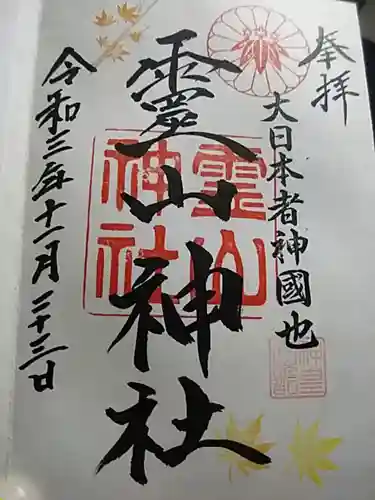 奉拝
大日本者神國也
靈山神社
霊山神社
令和三年十一月二十三日